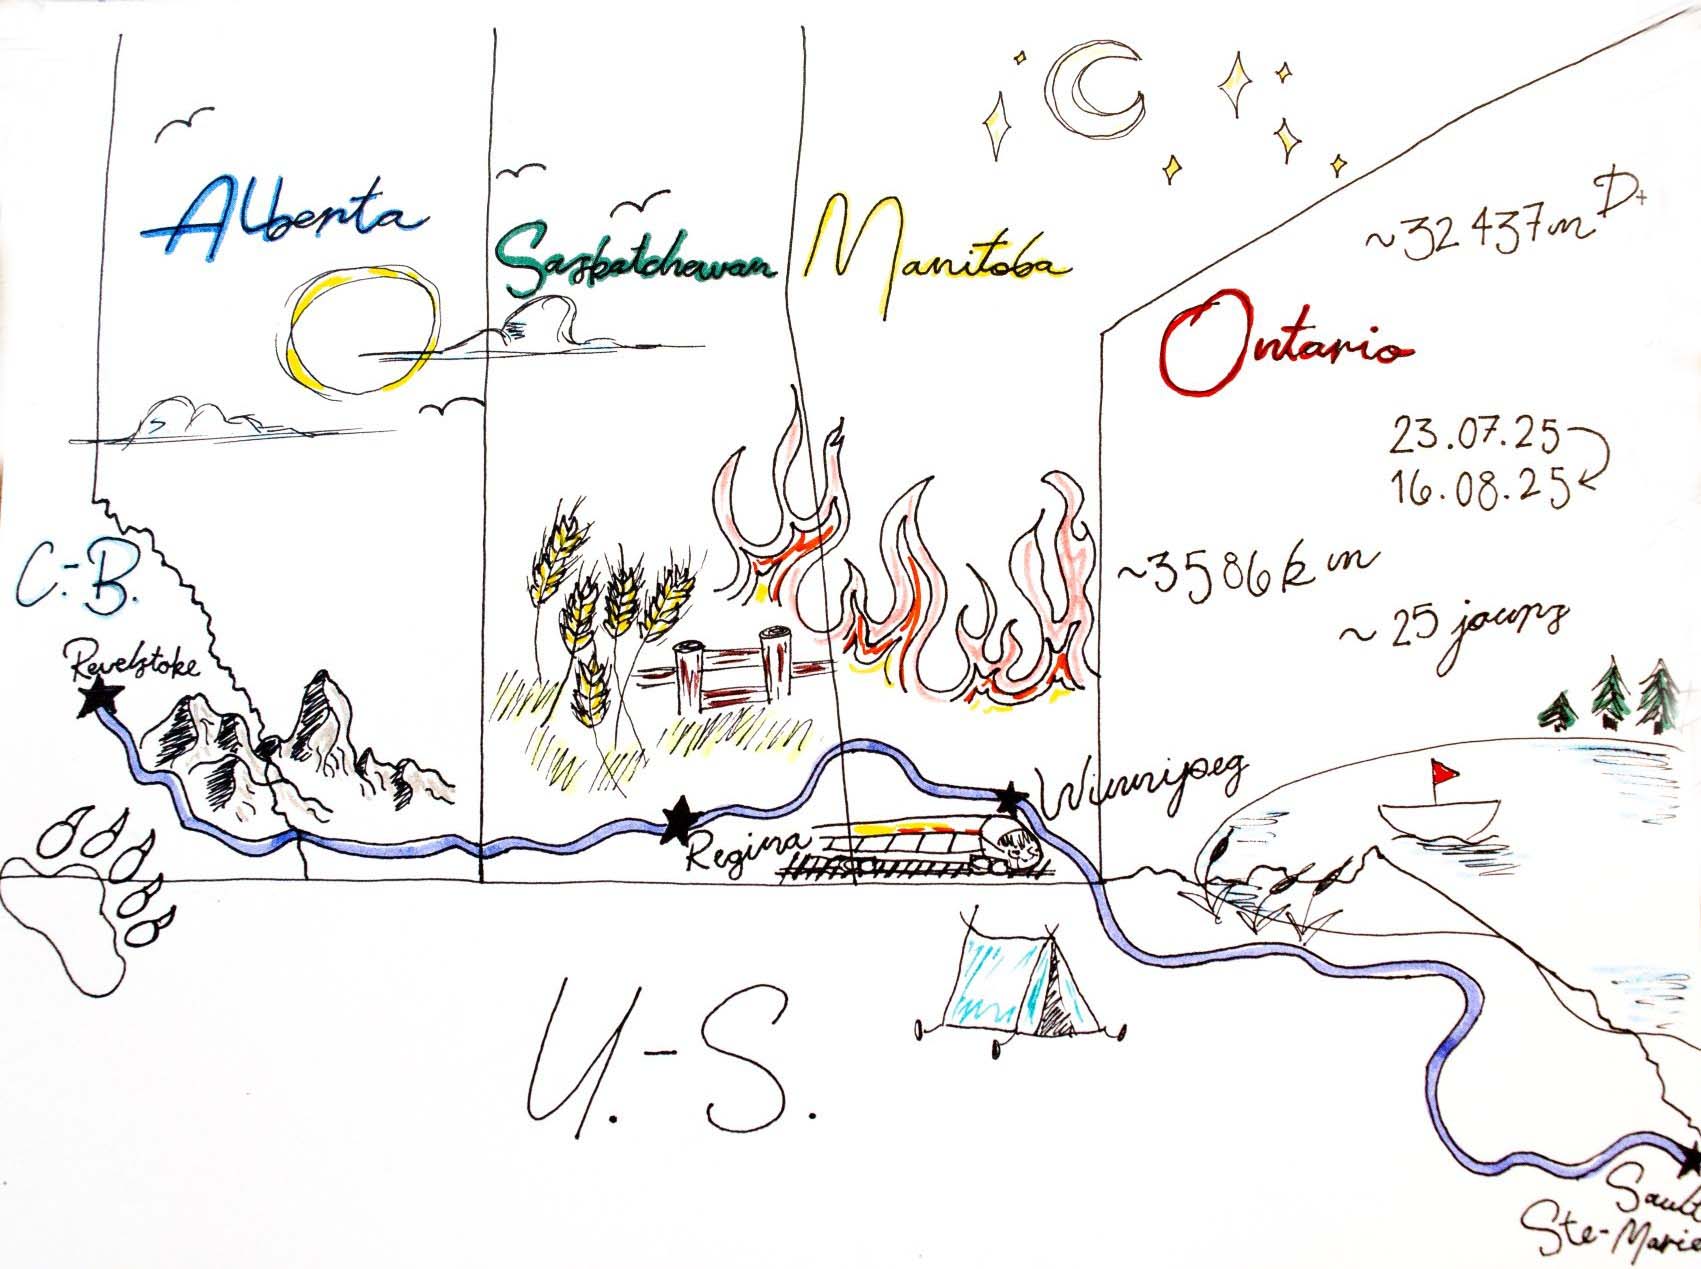 Alberta
Saskatchewan
Manitoba
~32 437m D+
Ontario
23.07.25
16.08.25
C.-B.
~3586km
~25 jours
Revelstoke
Winnipeg
Regina
U.-S.
Sault
Ste-Marie